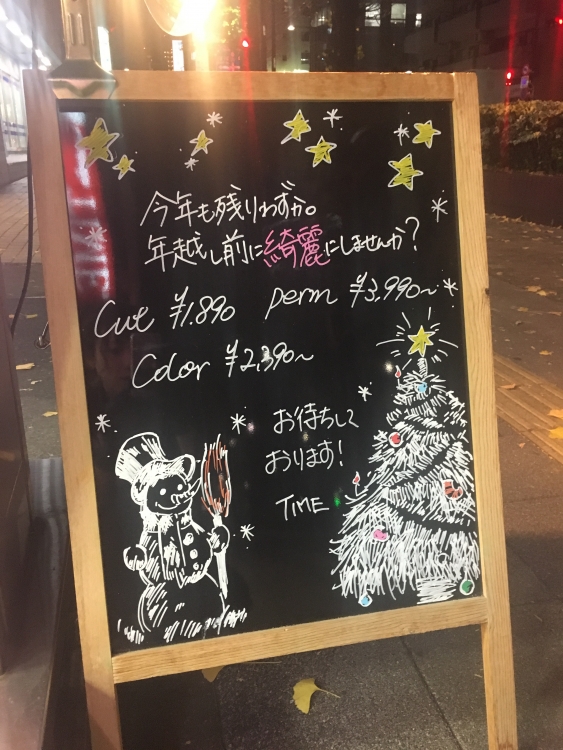 今年も残りわずか。
年越し前に綺麗にしませんか?
Cut ¥1.890 perm ¥3.990~
Color ¥2,390~
お待ちして
おります!
TIME